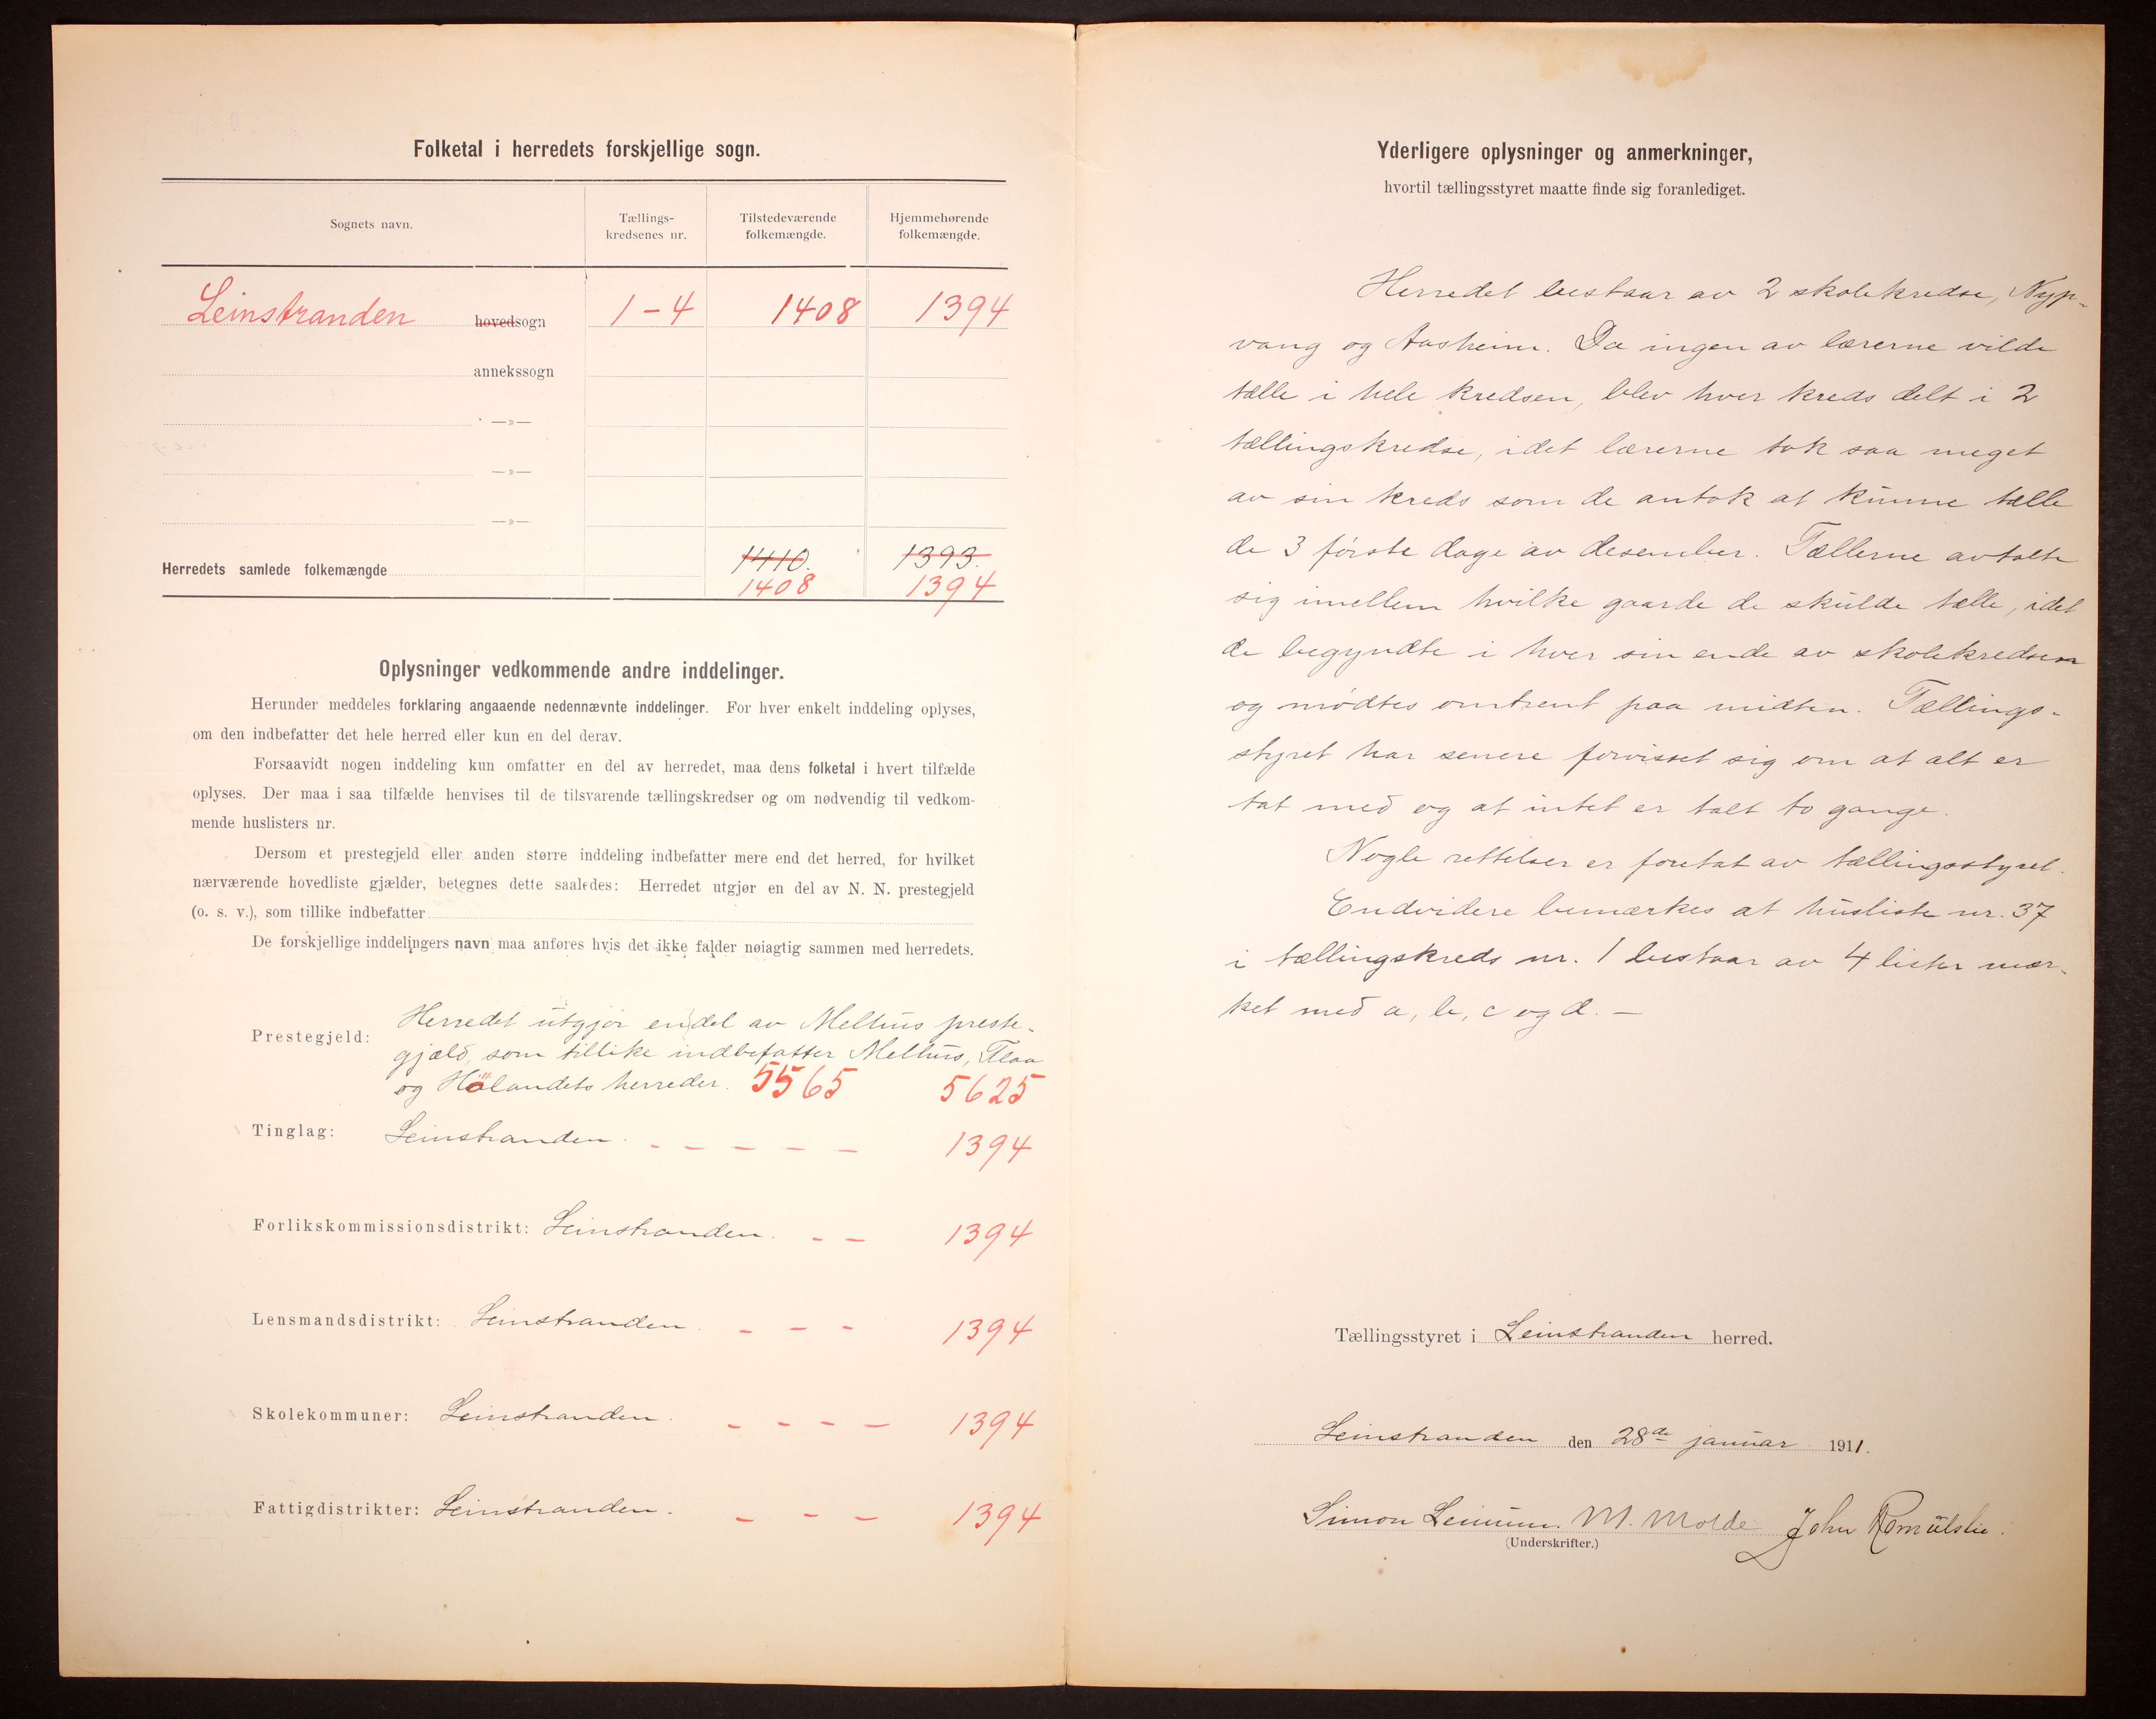 Folketal i herredets forskjellige sogn.
Sognets navn.
Tællings-
kredsenes nr.
Tilstedeværende
folkemængde.
Hjemmehørende
folkemængde.
Leinstranden hovedsogn 1-4 1408 1394
annekssogn
—»—
—»—
—»—
1410. 1393.
Herredets samlede folkemængde
1408 1394
Oplysninger vedkommende andre inddelinger.
Herunder meddeles forklaring angaaende nedennævnte inddelinger. For hver enkelt inddeling oplyses,
om den indbefatter det hele herred eller kun en del derav.
Forsaavidt nogen inddeling kun omfatter en del av herredet, maa dens folketal i hvert tilfælde
oplyses. Der maa i saa tilfælde henvises til de tilsvarende tællingskredser og om nødvendig til vedkom-
mende huslisters nr.
Dersom et prestegjeld eller anden større inddeling indbefatter mere end det herred, for hvilket
nærværende hovedliste gjælder, betegnes dette saaledes: Herredet utgjør en del av N. N. prestegjeld
(o. s. v.), som tillike indbefatter
De forskjellige inddelingers navn maa anføres hvis det ikke falder nøiagtig sammen med herredets.
Prestegjeld: Herredet utgjør en del av Melhus preste-
gjæld, som tillike indbefatter Melhus, Flaa
og Hølandets herreder. 5565 5625
Tinglag: Leinstranden. - - - - - 1394
Forlikskommissionsdistrikt: Leinstranden. - - 1394
Lensmandsdistrikt: Leinstranden - - - 1394
Skolekommuner: Leinstranden. - - - - 1394
Fattigdistrikter: Leinstranden. - - - 1394
Yderligere oplysninger og anmerkninger,
hvortil tællingsstyret maatte finde sig foranlediget.
Herredet bestaar av 2 skolekredse, Nyp-
vang og Aasheim. Da ingen av lærerne vilde
tælle i hele kredsen, blev hver kreds delt i 2
tællingskredse, idet lærerne tok saa meget
av sin kreds som de antok at kunne tælle
de 3 første dage av desember. Tællerne avtalte
sig imellem hvilke gaarde de skulde tælle, idet
de begyndte i hver sin ende av skolekredsen
og mødtes omtrent paa midten. Tællings-
styret har senere forvisset sig om at alt er
tat med og at intet er talt to gange.
Nogle rettelser er foretat av tællingsstyret.
Endvidere bemærkes at husliste nr. 37
i tællingskreds nr. 1 bestaar av 4 lister mær-
ket med a, b, c og d. —
Tællingsstyret i Leinstranden herred.
Leinstranden den 28de januar 1911.
Simon Leinum. M. Molde John Romulslie.
(Underskrifter.)